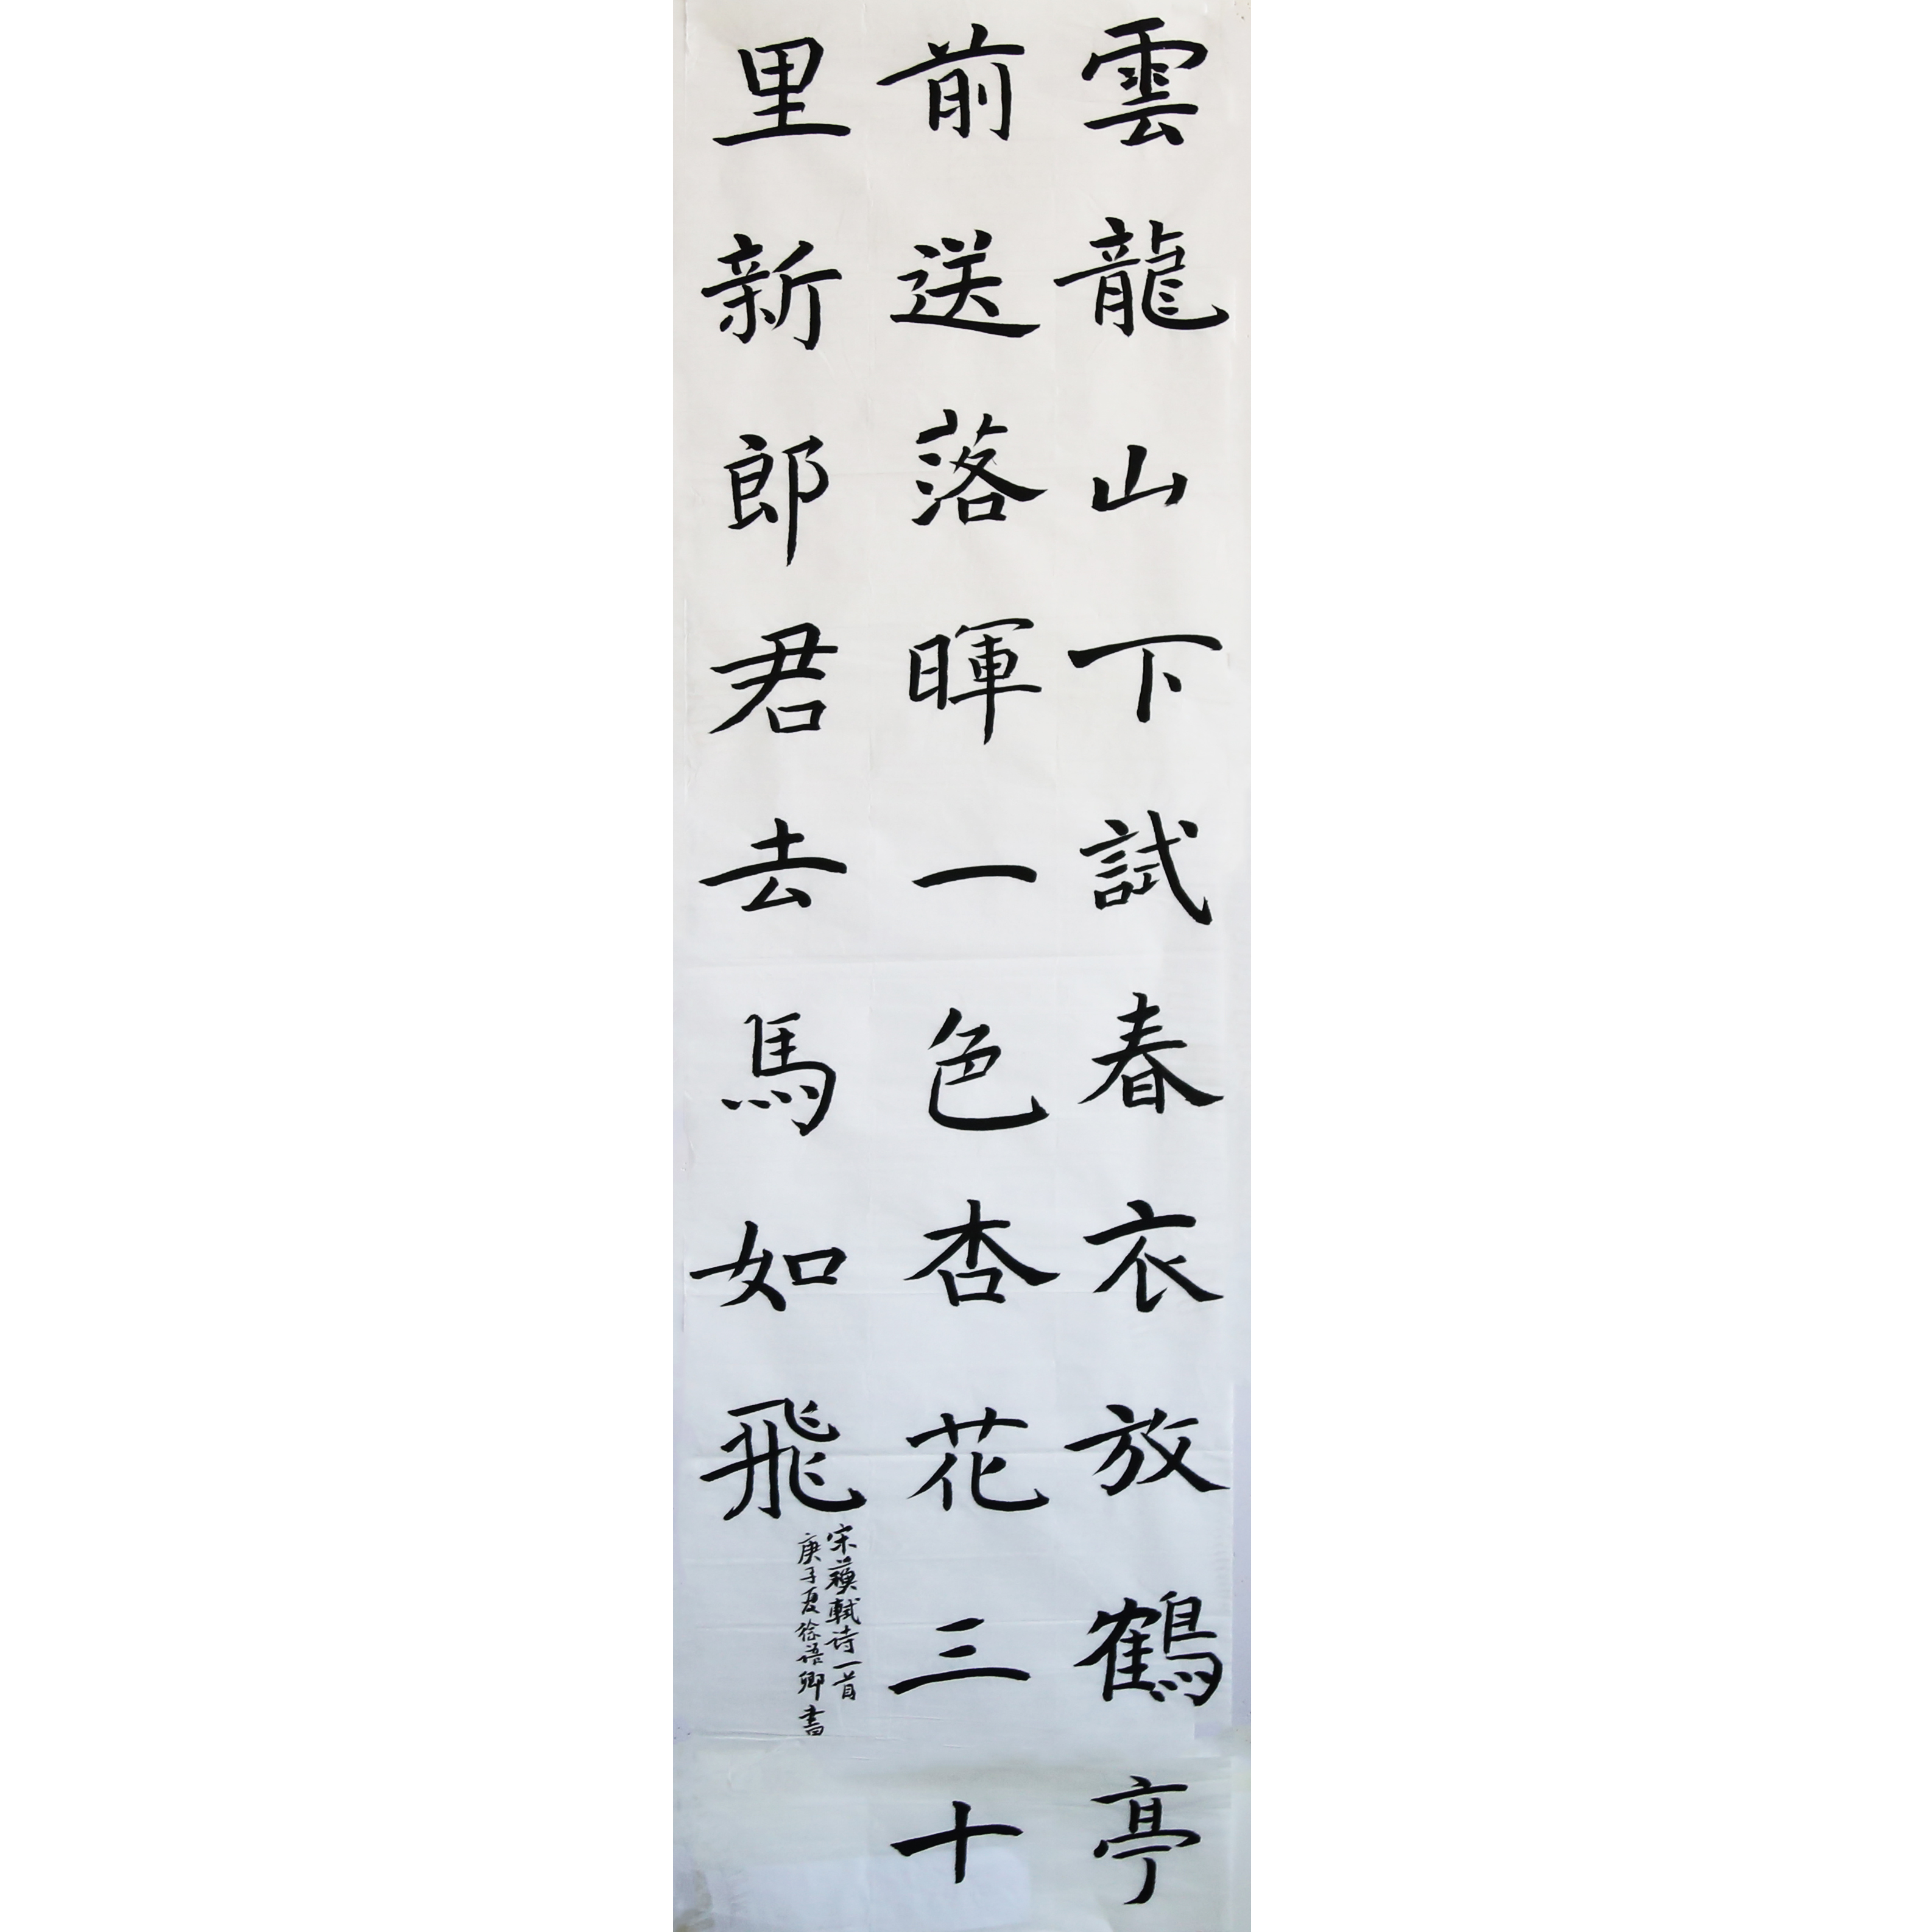 雲龍山下試春衣放鶴亭
前送落暉一色杏花三十
里新郎君去馬如飛
宋蘇軾诗一首
庚子夏徐语卿書